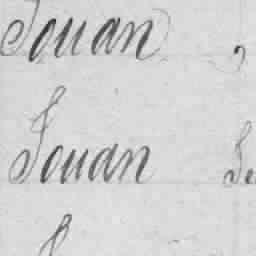 Jouan
Jouan